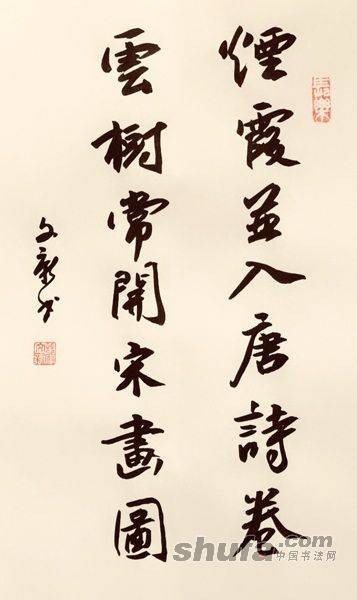 煙霞並入唐詩卷
雲樹常開宋畫圖
文新书
shufa.com
中国书法网